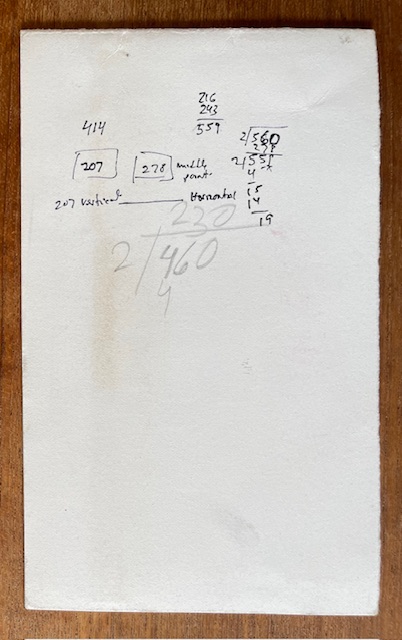 216
243
559
414
2/560
278
2/559
4
15
14
19
207
278 middle
points
207 vertical Horizontal
230
2/460
4